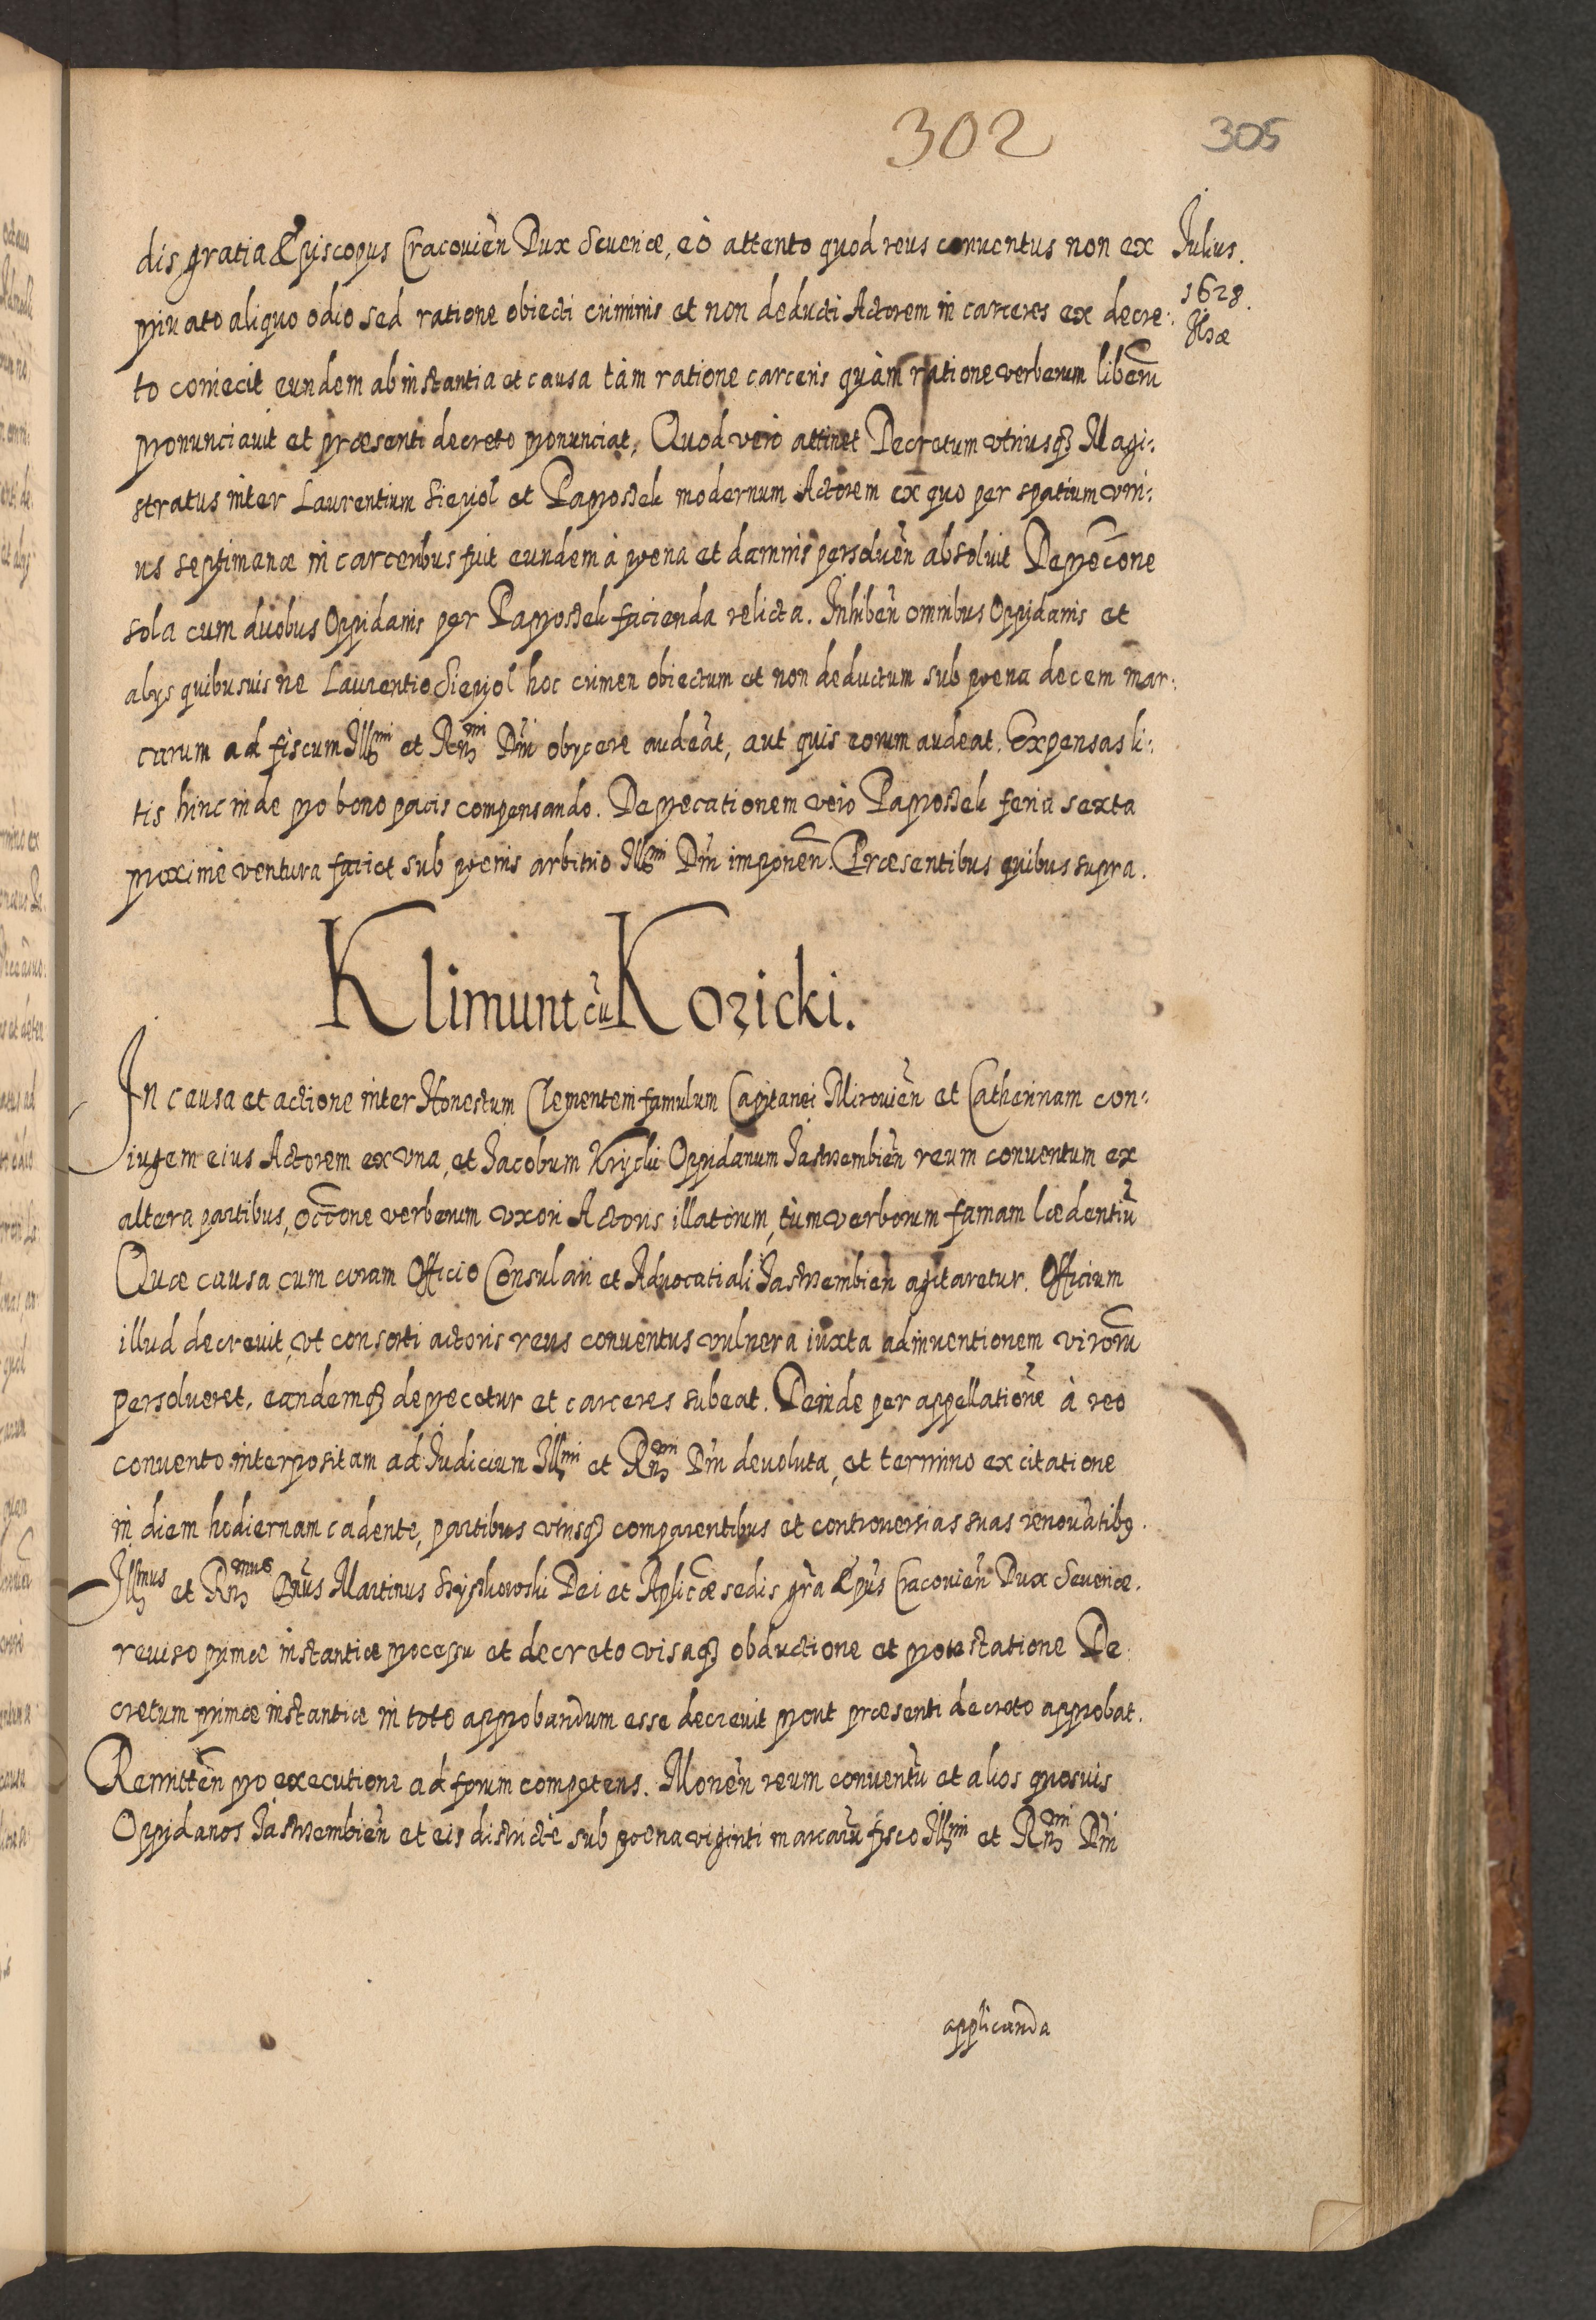 302
305
Julius.
1628.
Ilżæ
dis gratia Episcopus Cracovień Dux Severiæ, eò attento quod reus conventus non ex
privato aliquo odio sed ratione obiecti criminis et non deducti Actorem in carceres ex decre:
to coniecit eundem ab instantia et causa tàm ratione carceris quàm ratione verberum liberũ
pronunciavit et præsenti decreto pronunciat, Quod verò attinet Decretum utriusq Magi:
stratus inter Laurentium Siepiol et Paprostek modernum Actorem ex quo per spatium uni:
us septimanæ in carceribus fuit eundem à pœna et damnis persolueñ absoluit Deprecõne
sola cum duobus Oppidanis per Paprostek facienda relicta. Inhibeñ omnibus Oppidanis et
alijs quibusuis ne Laurentio Siepiol hoc crimen obiectum et non deductum sub pœna decem mar:
carum ad fiscum Illmi et Rndmi Dñi obijcere audeãt, aut quis eorum audeat. Expensas li:
tis hinc inde pro bono pacis compensando. Deprecationem verò Paprostek feria sexta
proximè ventura faciet sub pœnis arbitrio Illmi Dñi imponeñ. Præsentibus quibus supra.
Klimunt cũ Kozicki.
In causa et actione inter Honestum Clementem famulum Capitanei Mirovień et Catherinam con:
iugem eius Actorem ex una, et Jacobum Oppidanum Jastrzembień reum conventum ex
altera partibus, occõne verberum uxori Actoris illatorum, tùm verborum famam lædentiũ
Quæ causa cum coram Officio Consulari et Aduocatiali Jastrzembień agitaretur. Officium
illud decreuit, ut consorti actoris reus conventus vulnera iuxta adinventionem virorũ
persolveret, eandemq deprecetur et carceres subeat. Deinde per appellationẽ à reo
convento interpositam ad Judicium Illmi et Rndmi Dñi devoluta, et termino ex citatione
in diem hodiernam cadente, partibus utrisq comparentibus et controversias suas renovãtibq.
Illmus et Rndmus Dñus Martinus Szyszkowski Dei et Aplicæ sedis gr̃a Epũs Cracovień Dux Severiæ.
reviso primæ instantiæ processu et decreto visaq obductione et protestatione De:
cretum primæ instantiæ in toto approbandum esse decrevit prout præsenti decreto approbat.
Remitteñ pro executione ad forum competens. Moneñ reum conventũ et alios quosvis
Oppidanos Jastrzembień et eis districtè sub pœna viginti marcarũ fisco Illmi et Rndmi Dñi
applicanda